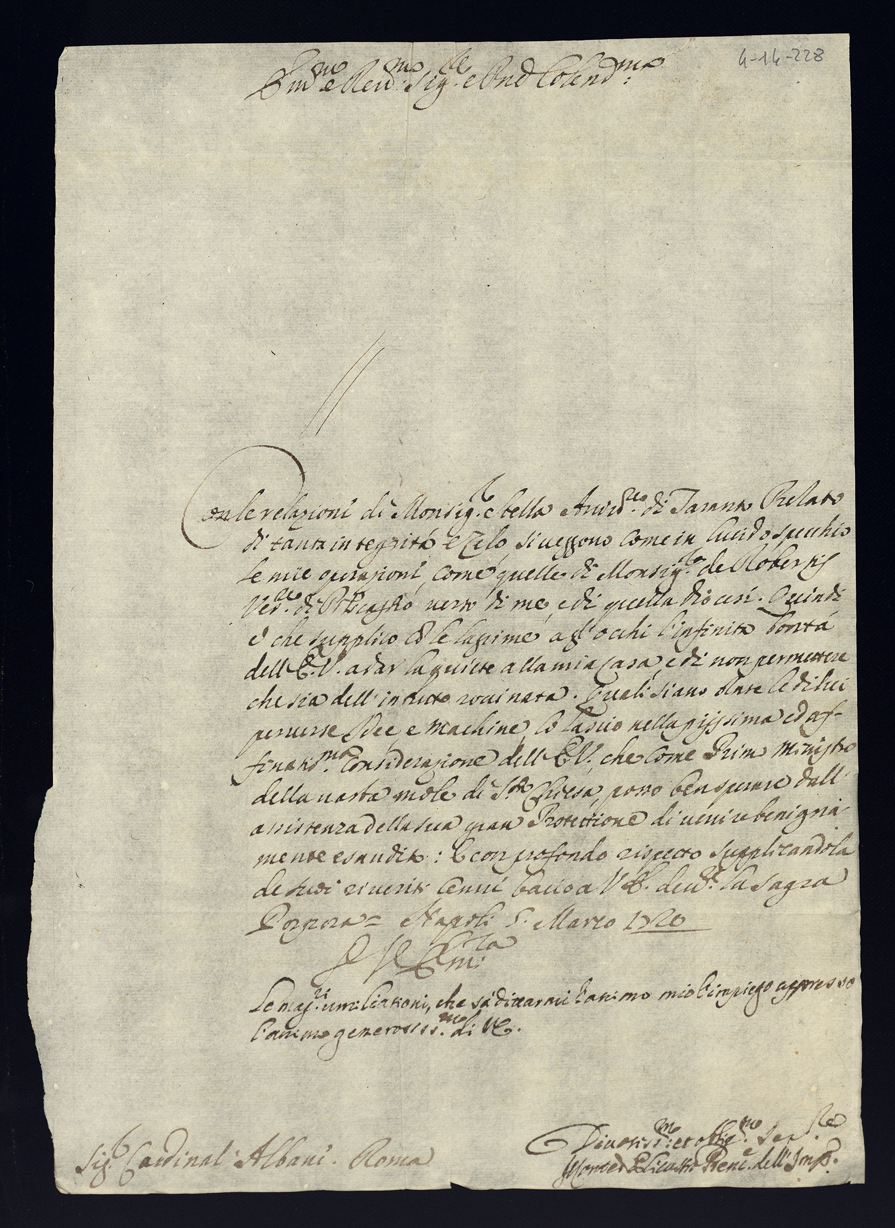 4-14-228
Em.mo e Rev.mo Sig.re e Pnd Colend.mo
Con le relazioni di Monsig.re della Arciv.vo di Taranto Prelato
di tanta integrità, e Zelo si veggono come in lucido specchio
le mie operazioni, come quelle di Monsig.re de Robertis
Ves.vo di verso di me, e di quella diocesi. Quindi
è che supplico co le lagrime a gl'occhi l'infinita bontà
dell'E.V. a dar la quiete alla mia Casa, e di non permettere
che sia dell'in tutto rovinata. Quali siano state le di lui
perverse Idee e machine, lo lascio nella pijssima ed af-
finatis.ma Considerazione dell'E.V. che come Prim Ministro
della vasta mole di S.ta Chiesa, posso ben sperare dall'
assistenza della sua gran Protettione di venire benigna-
mente esaudito: E con profondo rispetto supplicandola
de suoi riveriti cenni bacio a V.E. la Sagra
Porpora = Napoli 5. Marzo 1720
D V Em.za
che
l'animo generosiss.mo di VE.
Sig.r Cardinal Albani. Roma
Divotiss.mo et obblig.mo Ser.re
dell'Imp.